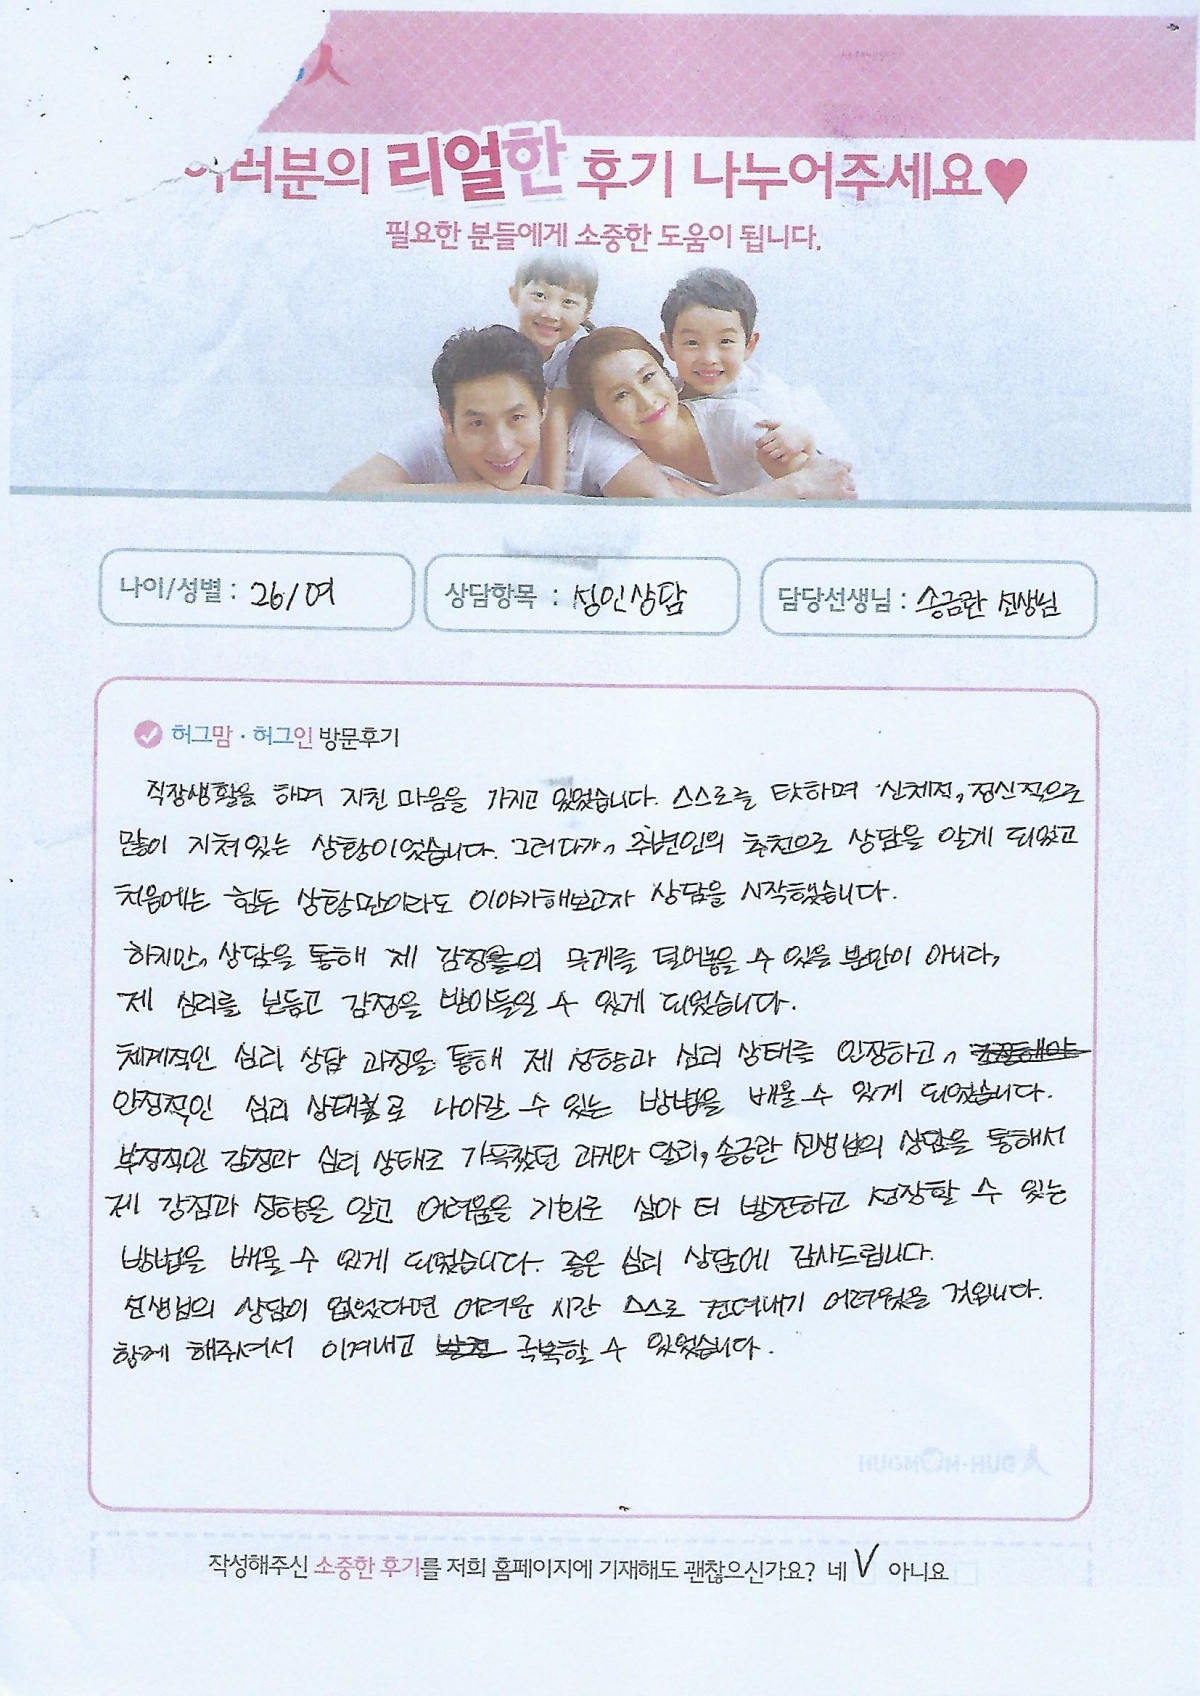 여러분의 리얼한 후기 나누어주세요♥
필요한 분들에게 소중한 도움이 됩니다.
나이/성별 : 26/여
상담항목 : 성인상담
담당선생님 : 송금란 선생님
허그맘 · 허그인 방문후기
직장생활을 하며 지친 마음을 가지고 있었습니다. 스스로를 탓하며 신체적, 정신적으로
많이 지쳐있는 상황이었습니다. 그러다가, 주변인의 추천으로 상담을 알게 되었고
처음에는 힘든 상황만이라도 이야기해보고자 상담을 시작했습니다.
하지만, 상담을 통해 제 감정들의 무게를 덜어놓을 수 있을 뿐만이 아니라,
제 심리를 보듬고 감정을 받아들일 수 있게 되었습니다.
체계적인 심리 상담 과정을 통해 제 성향과 심리 상태를 인정하고,
안정적인 심리 상태로 나아갈 수 있는 방법을 배울 수 있게 되었습니다.
부정적인 감정과 심리 상태로 가득찼던 과거와 달리, 송금란 선생님의 상담을 통해서
제 강점과 성향을 알고 어려움을 기회로 삼아 더 발전하고 성장할 수 있는
방법을 배울 수 있게 되었습니다. 좋은 심리 상담에 감사드립니다.
선생님의 상담이 없었다면 어려운 시간 스스로 견뎌내기 어려웠을 것입니다.
함께 해주셔서 이겨내고 극복할 수 있었습니다.
작성해주신 소중한 후기를 저희 홈페이지에 기재해도 괜찮으신가요? 네 V 아니요